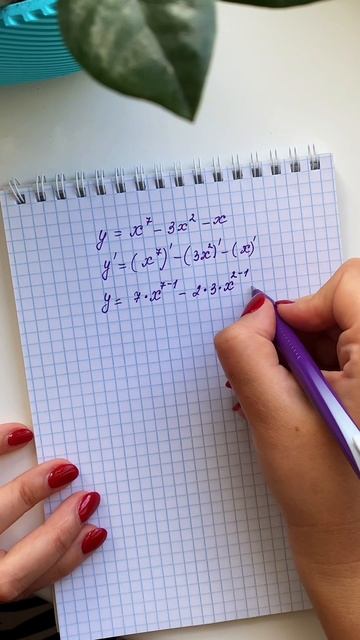 y = x⁷ - 3x² - x
y' = (x⁷)' - (3x²)' - (x)'
y = 7·x⁷⁻¹ - 2·3·x²⁻¹